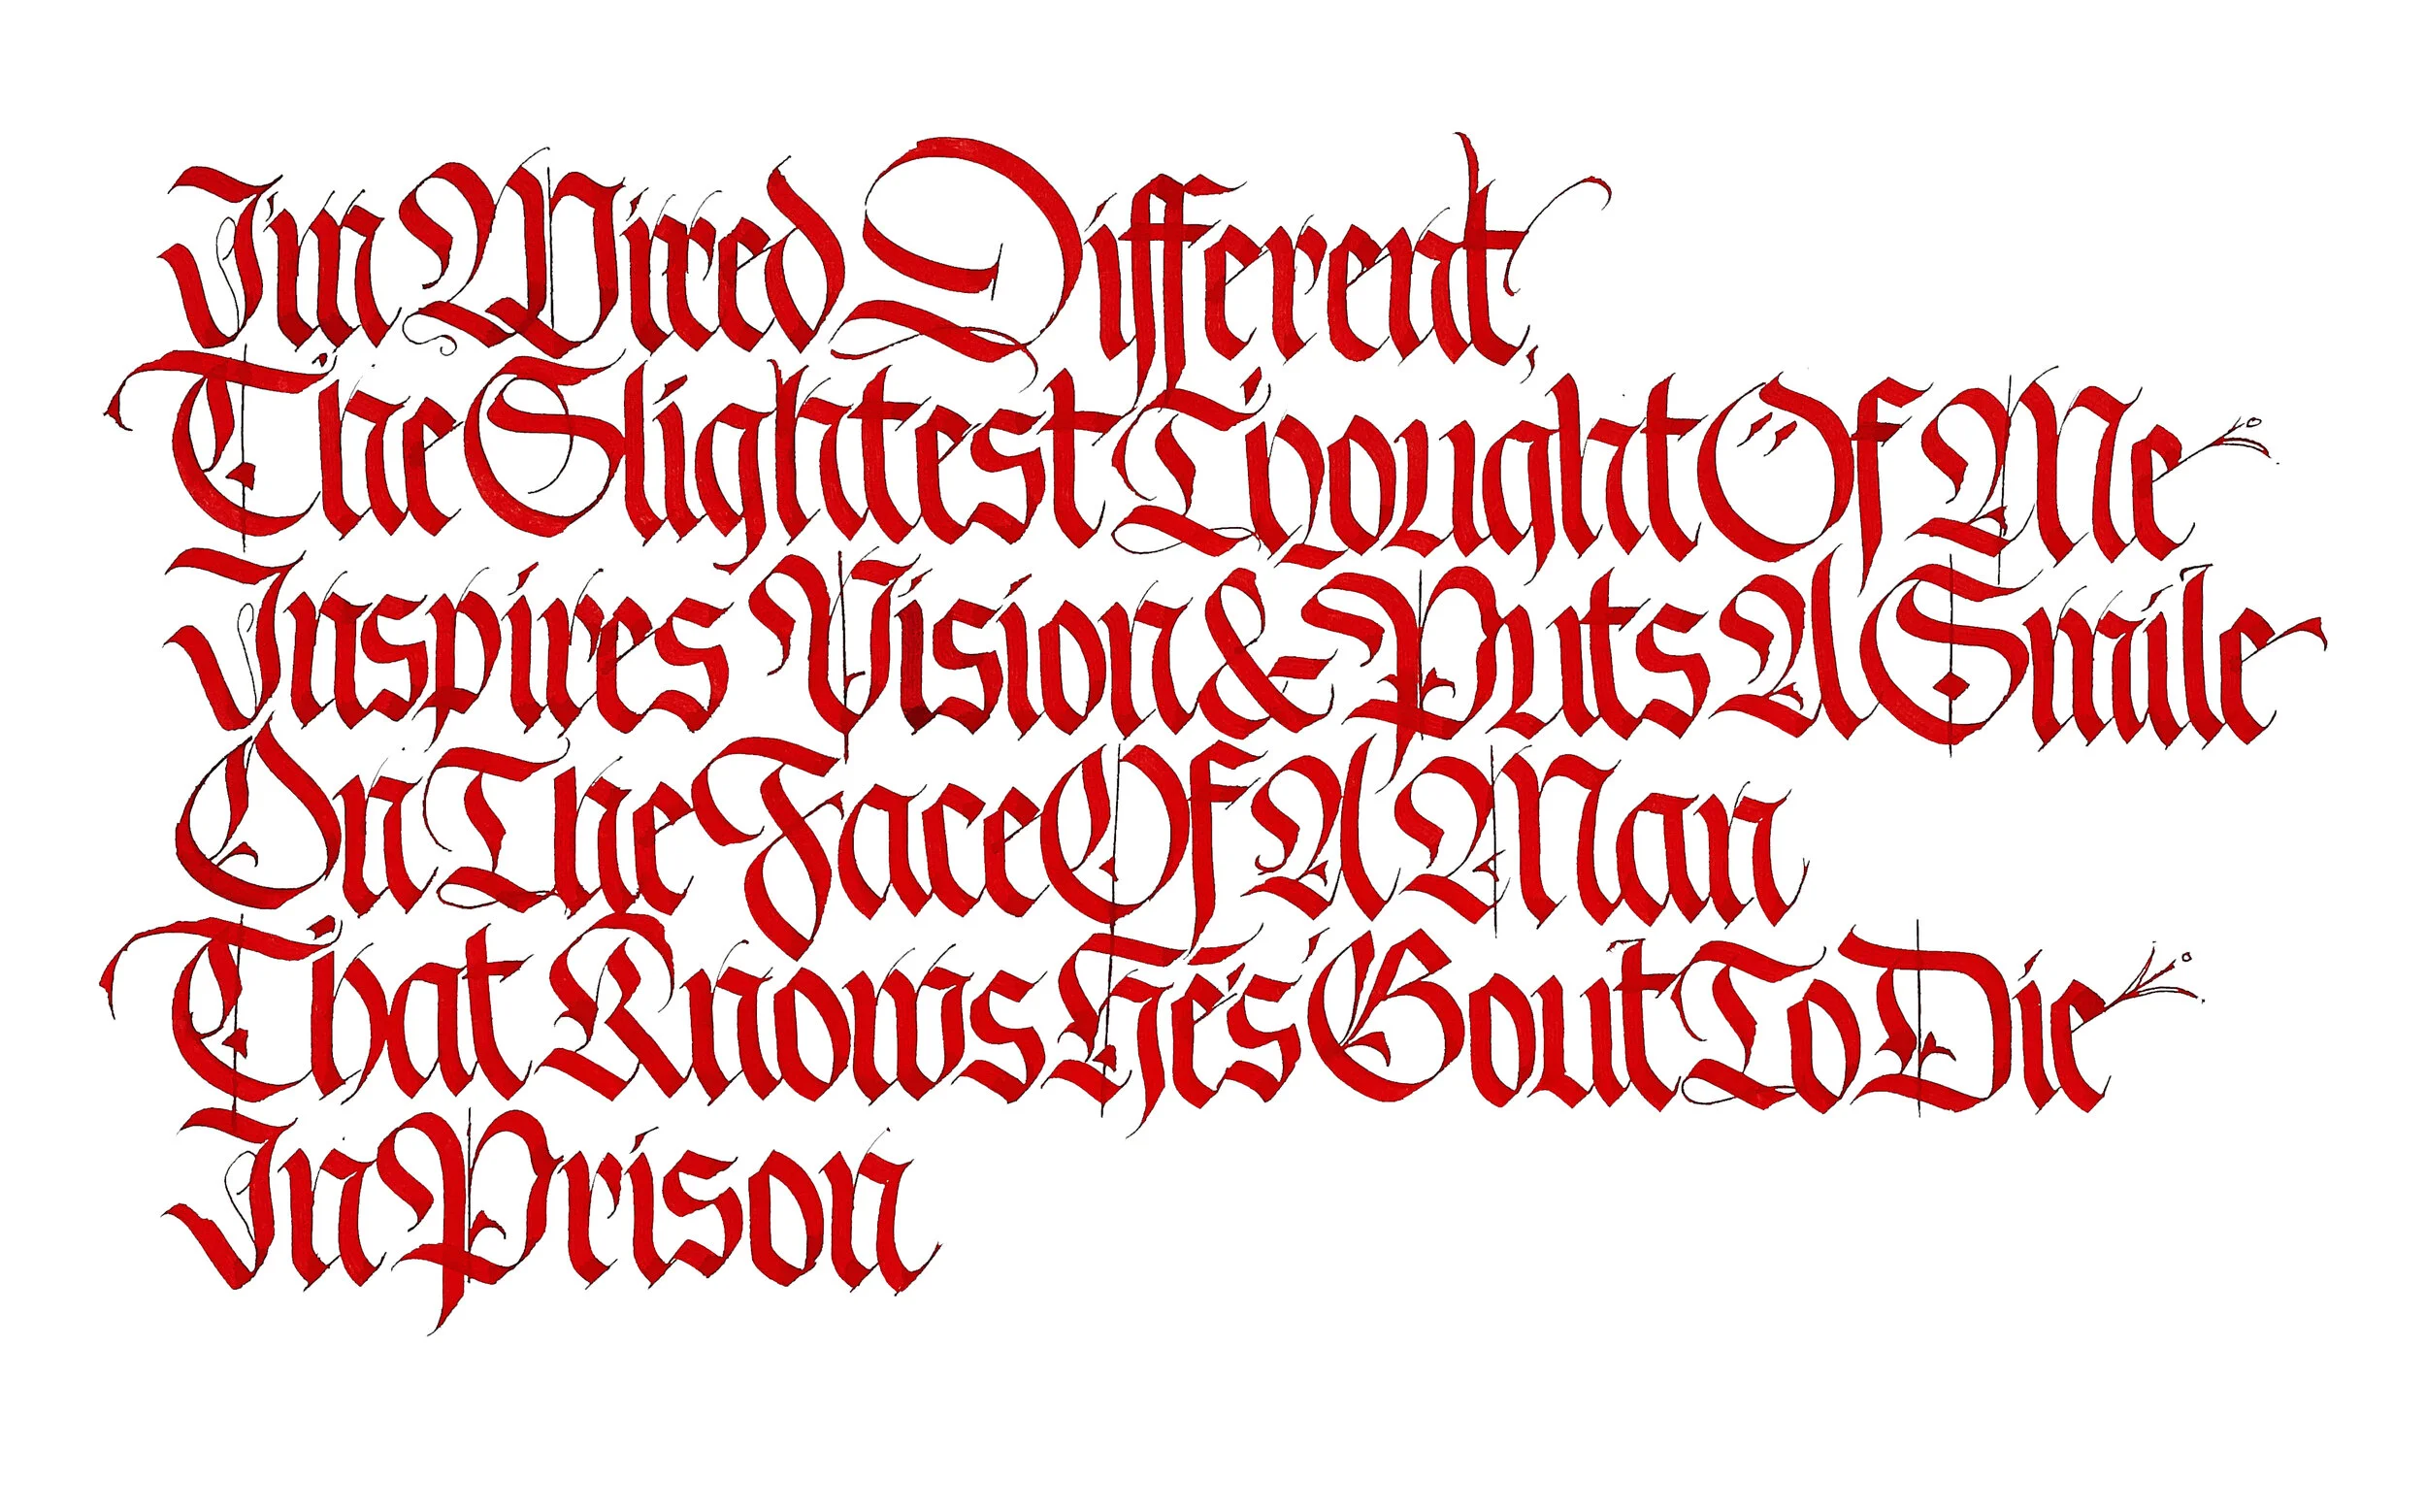 I'm Wired Different,
The Slightest Thought Of Me
Inspires Vision & Puts A Smile
On The Face Of A Man
That Knows He's Bout To Die
In Prison